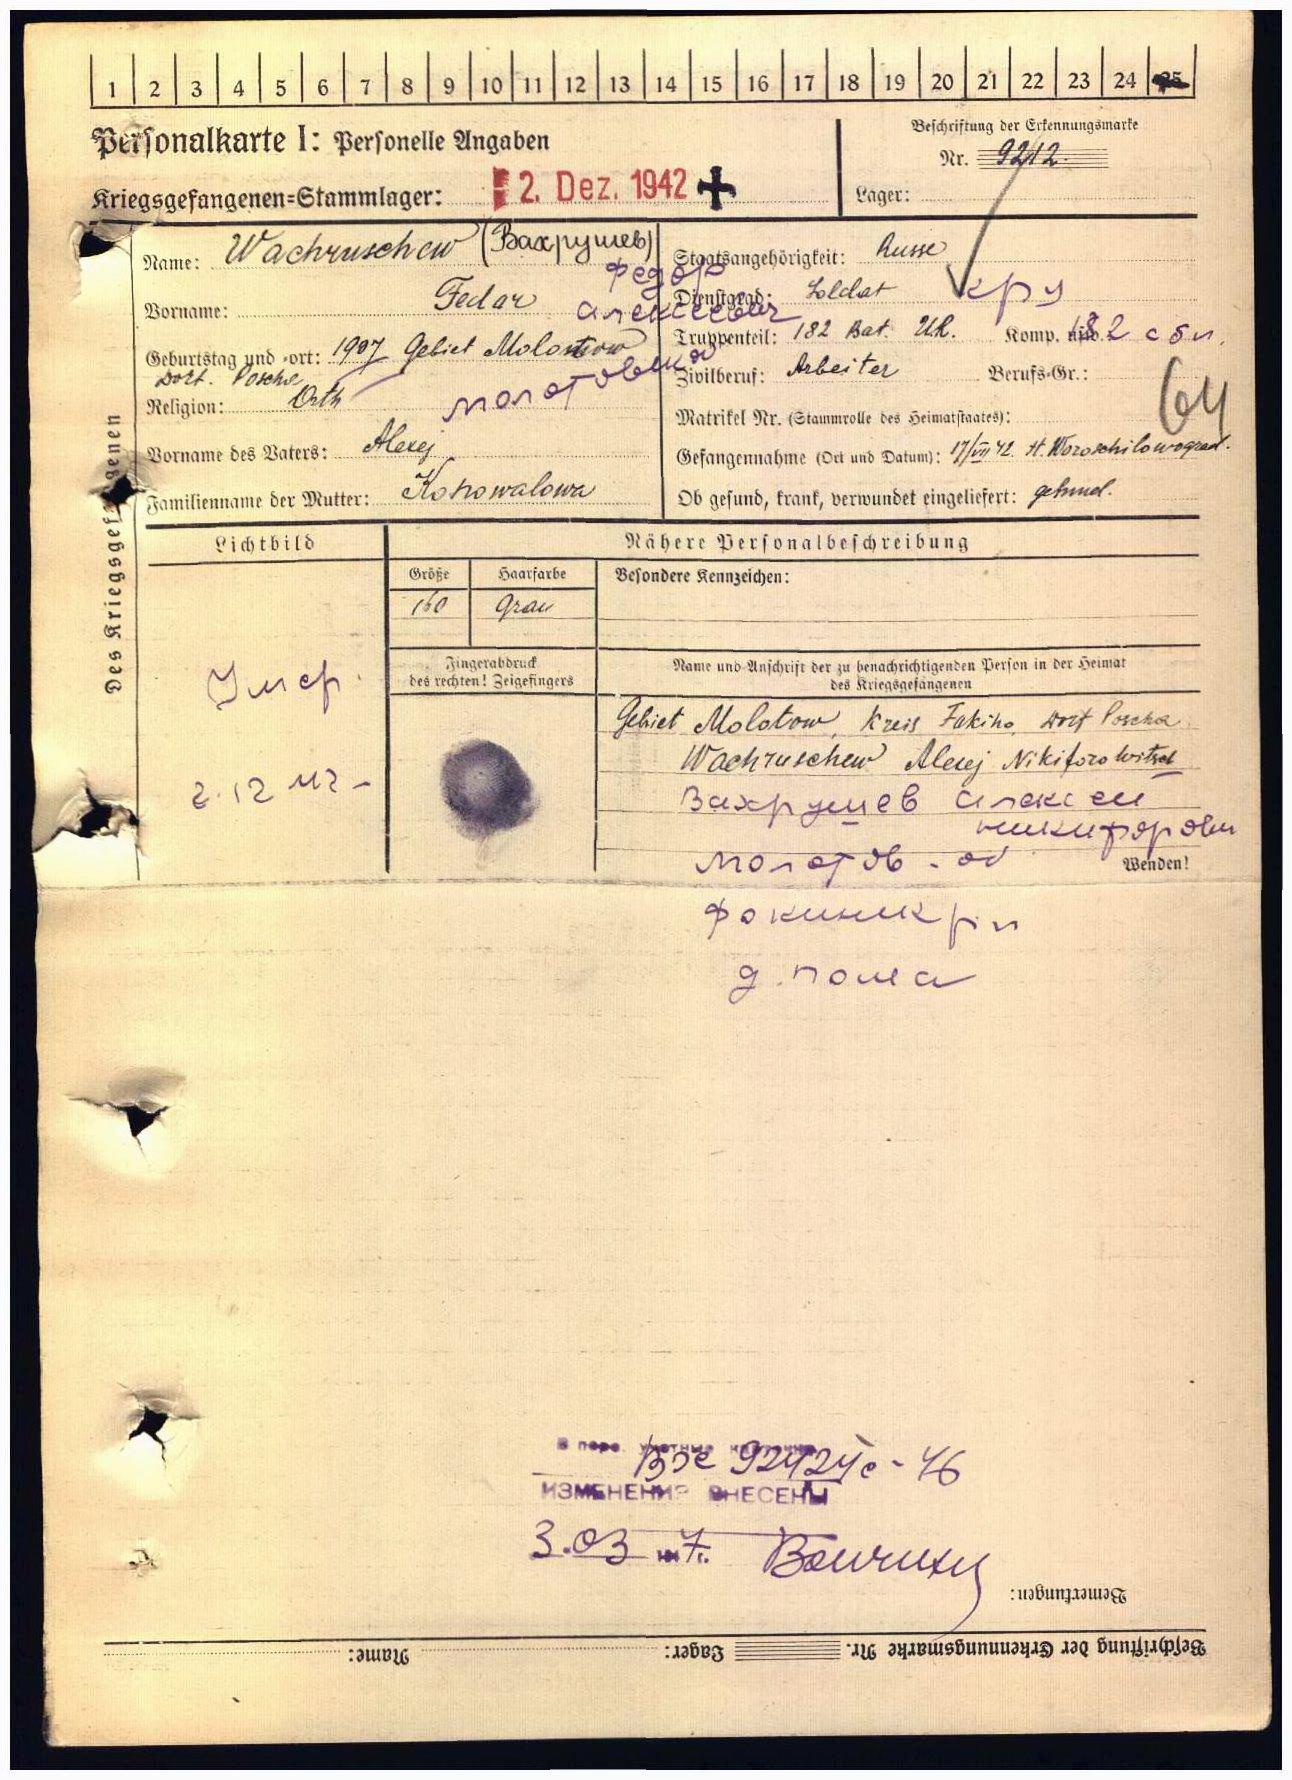 1 2 3 4 5 6 7 8 9 10 11 12 13 14 15 16 17 18 19 20 21 22 23 24 25
Personalkarte I: Personelle Angaben
Beschriftung der Erkennungsmarke
Nr. 9212.
Kriegsgefangenen-Stammlager: 2. Dez. 1942
Lager:
Des Kriegsgefangenen
Name: Wachruschew (Вахрушев)
Федор
Vorname: Fedar
Алексеевич
Geburtstag und -ort: 1907 Gebiet Molotow
Dorf. Poscha
Молотовская
Religion: Orth
Vorname des Vaters: Alexej
Familienname der Mutter: Konowalowa
Staatsangehörigkeit: Russe
Dienstgrad: Soldat кр-ц
Truppenteil: 182 Bat. UR. Komp. usw.: 182 с б л.
Zivilberuf: Arbeiter Berufs-Gr.:
64
Matrikel Nr. (Stammrolle des Heimatstaates):
Gefangennahme (Ort und Datum): 17/VII 42 St. Woroschilowograd.
Ob gesund, krank, verwundet eingeliefert: gesund.
Lichtbild
Nähere Personalbeschreibung
Größe Haarfarbe Besondere Kennzeichen:
160 Grau
Умер.
2.12 42 -
Fingerabdruck
des rechten! Zeigefingers
Name und Anschrift der zu benachrichtigenden Person in der Heimat
des Kriegsgefangenen
Gebiet Molotow, Kreis Fokino, Dorf Poscha
Wachruschew Alexej Nikiforowitsch
Вахрушев Алексей
Никифорович
Молотов - об
Wenden!
Фокинск р-н
д. Поша
В перс. учетные карточки
Вх 92424с - 46
ИЗМЕНЕНИЯ ВНЕСЕНЫ
3.03 1947 г.
Bemerkungen:
Beschriftung der Erkennungsmarke Nr. Lager: Name: